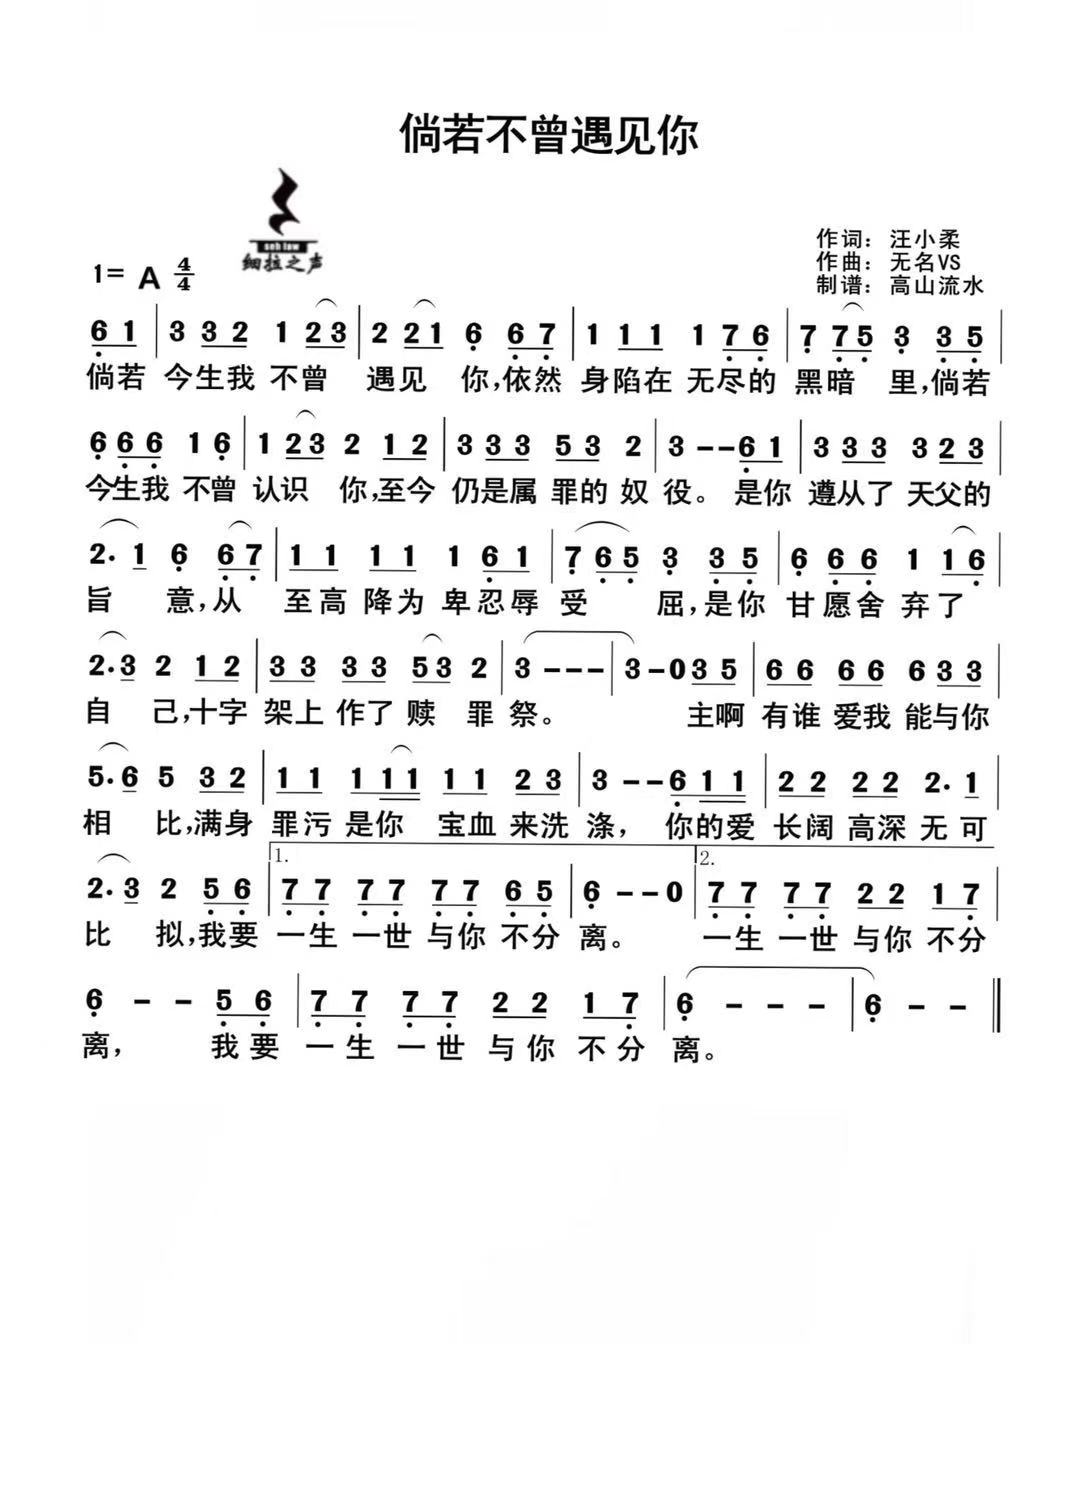 倘若不曾遇见你
seh law
细拉之声
作词：汪小柔
作曲：无名VS
制谱：高山流水
1= A 4/4
6 1 | 3 3 3 2 1 2 3 | 2 2 2 1 6 6 7 | 1 1 1 1 1 7 6 | 7 7 5 3 3 5 |
倘若 今生我 不曾 遇见 你,依然 身陷在 无尽的 黑暗 里,倘若
6 6 6 1 6 | 1 2 3 2 1 2 | 3 3 3 5 3 2 | 3 - - 6 1 | 3 3 3 3 2 3 |
今生我 不曾 认识 你,至今 仍是属 罪的 奴 役。 是你 遵从了 天父的
2. 1 6 6 7 | 1 1 1 1 1 6 1 | 7 6 5 3 3 5 | 6 6 6 1 1 6 |
旨 意,从 至高 降为 卑忍辱 受 屈,是你 甘愿舍 弃了
2. 3 2 1 2 | 3 3 3 3 5 3 2 | 3 - - - | 3 - 0 3 5 | 6 6 6 6 6 3 3 |
自 己,十字 架上 作了 赎 罪祭。 主啊 有谁 爱我 能与你
5. 6 5 3 2 | 1 1 1 1 1 1 1 2 3 | 3 - - 6 1 1 | 2 2 2 2 2. 1 |
相 比,满身 罪污 是你 宝血 来洗 涤， 你的爱 长阔 高深 无可
1. 2.
2. 3 2 5 6 | 7 7 7 7 7 7 6 5 | 6 - - 0 | 7 7 7 7 2 2 1 7 |
比 拟,我要 一生 一世 与你 不分 离。 一生 一世 与你 不分
6 - - 5 6 | 7 7 7 7 2 2 1 7 | 6 - - - | 6 - - ||
离， 我要 一生 一世 与你 不分 离。